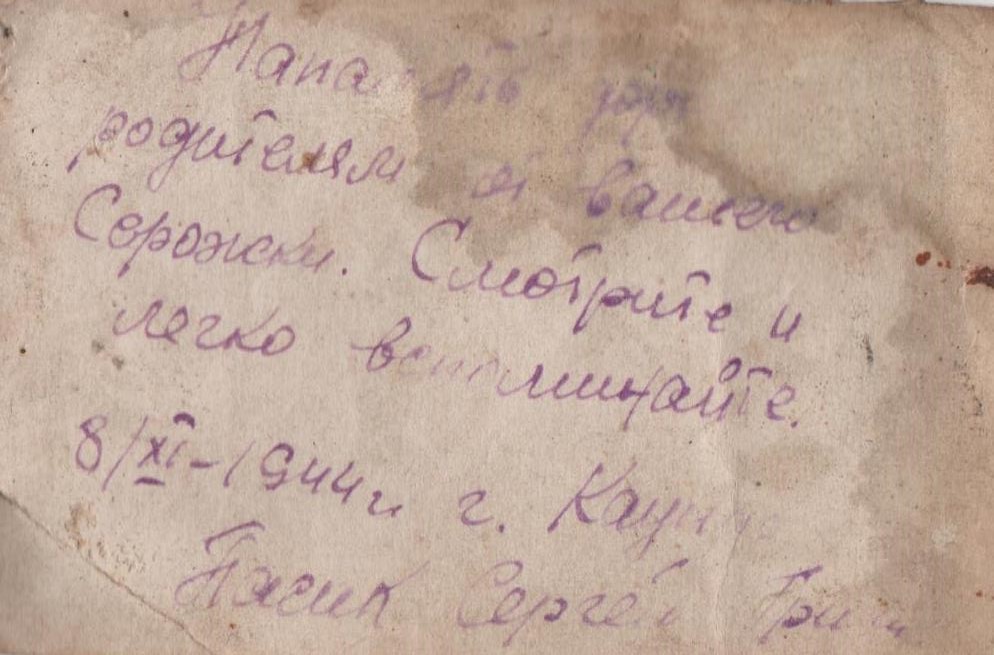 Напамять
родителям от вашего
Сережки. Смотрите и
легко вспоминайте.
8/XI-1944 г. Каунас
Сергей